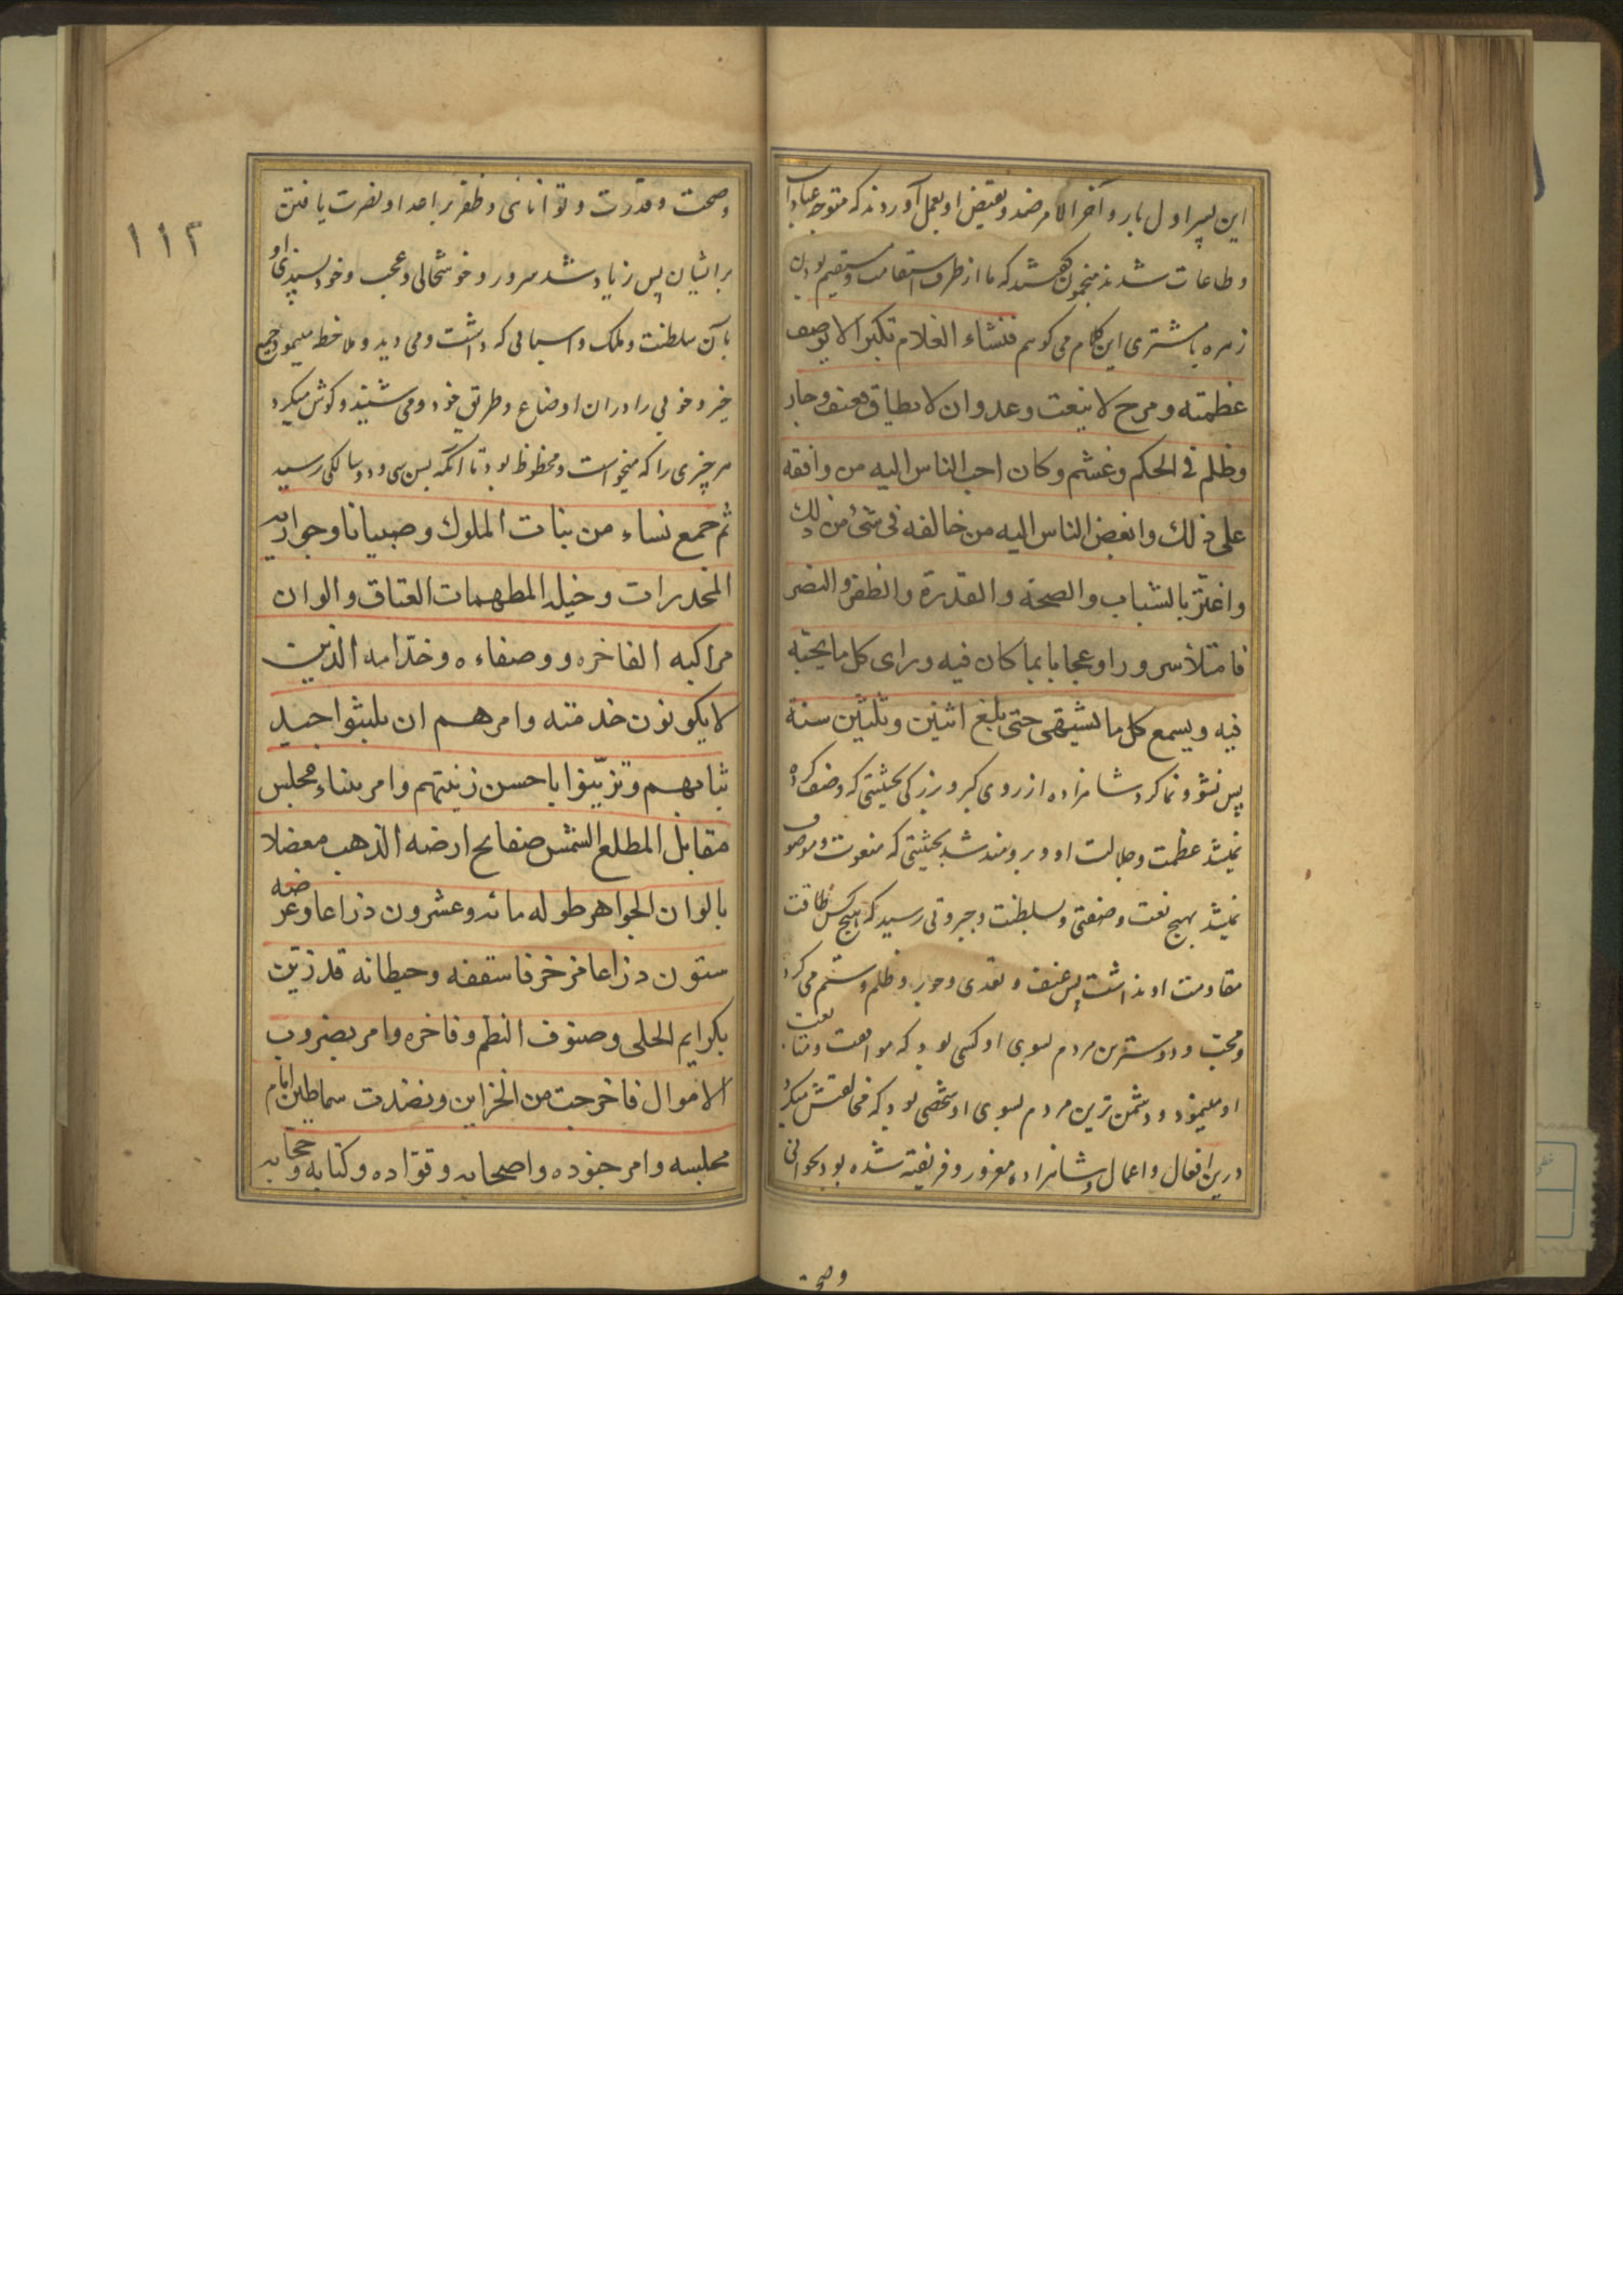 این پسر اول بار و آخر الامر ضد و نقیض او بعمل آوردند که متوجه عبادات
و طاعات شدند منجمون گفتند که ما از طرف استقامت و مستقیم بودن
زهره با مشتری این کلام می کوییم فنشاء الغلام تکبرا لا یوصف
عظمته و مرح لا ینعت وعدوان لا یطاق فعنف وجار
وظلم فی الحکم وغشم وکان احب الناس الیه من وافقه
علی ذلك وابغض الناس الیه من خالفه فی شئ من ذلك
واغتر بالشباب والصحة والقدرة والظفر والنضر
فامتلأ سرورا وعجابا بما کان فیه ورای کل ما یحبه
فیه ویسمع کل ما یشیتهی حتی بلغ اثنین وثلثین سنة
پس نشو و نما کرد شاهزاده از روی کبر و بزرکی بحیثیتی که وصف کرده
نمیشد عظمت و جلالت او و برومند شد بحیثیتی که منعوت و موصوف
نمیشد بهیچ نعت و صفتی و بسلطنت و جبروتی رسید که هیچ کس طاقت
مقاومت او نداشت پس عنف و تعدی و جور و ظلم و ستم می کرد
و محب و دوسترین مردم بسوی او کسی بود که موافقت و متابعت
او مینمود و دشمن ترین مردم بسوی او شخصی بود که مخالفتش میکرد
درین افعال و اعمال و شاهزاده مغرور و فریفته شده بود بجوانی
وصحت
١١٢
وصحت و قدرت و توانائی و ظفر بر اعدا و نصرت یافتن
بر ایشان پس زیاد شد سرور و خوشحالی و عجب و خود پسندی او
بآن سلطنت و ملک و اسبابی که داشت و می دید و ملاحظه مینمود جمیع
خیر و خوبی را در ان اوضاع و طریق خود و می شنید و کوش میکرد
هر چیزی را که میخواست و محظوظ بود تا آنکه بسن سی و دو سالکی رسید
ثم جمع نساء من بنات الملوك وصبیانا وجواریه
المخدرات وخیله المطهمات العتاق والوان
مراکبه الفاخره ووصفاءه وخدامه الذین
لا یکونون خدمته وامرهم ان یلبثوا جید
ثیابهم وتزینوا باحسن زینتهم وامر ببناء مجلس
مقابل المطلع الشمس صفایح ارضه الذهب مفضلا
بالوان الجواهر طوله مائه وعشرون ذراعا وعرضه
ستون ذراعا مزخرفا سقفه وحیطانه قد زین
بکرایم الحلی وصنوف النظم وفاخره وامر بضروب
الاموال فاخرجت من الخزاین ونضدت سماطین امام
مجلسه وامر جنوده واصحابه وقواده وکتابه وحجابه